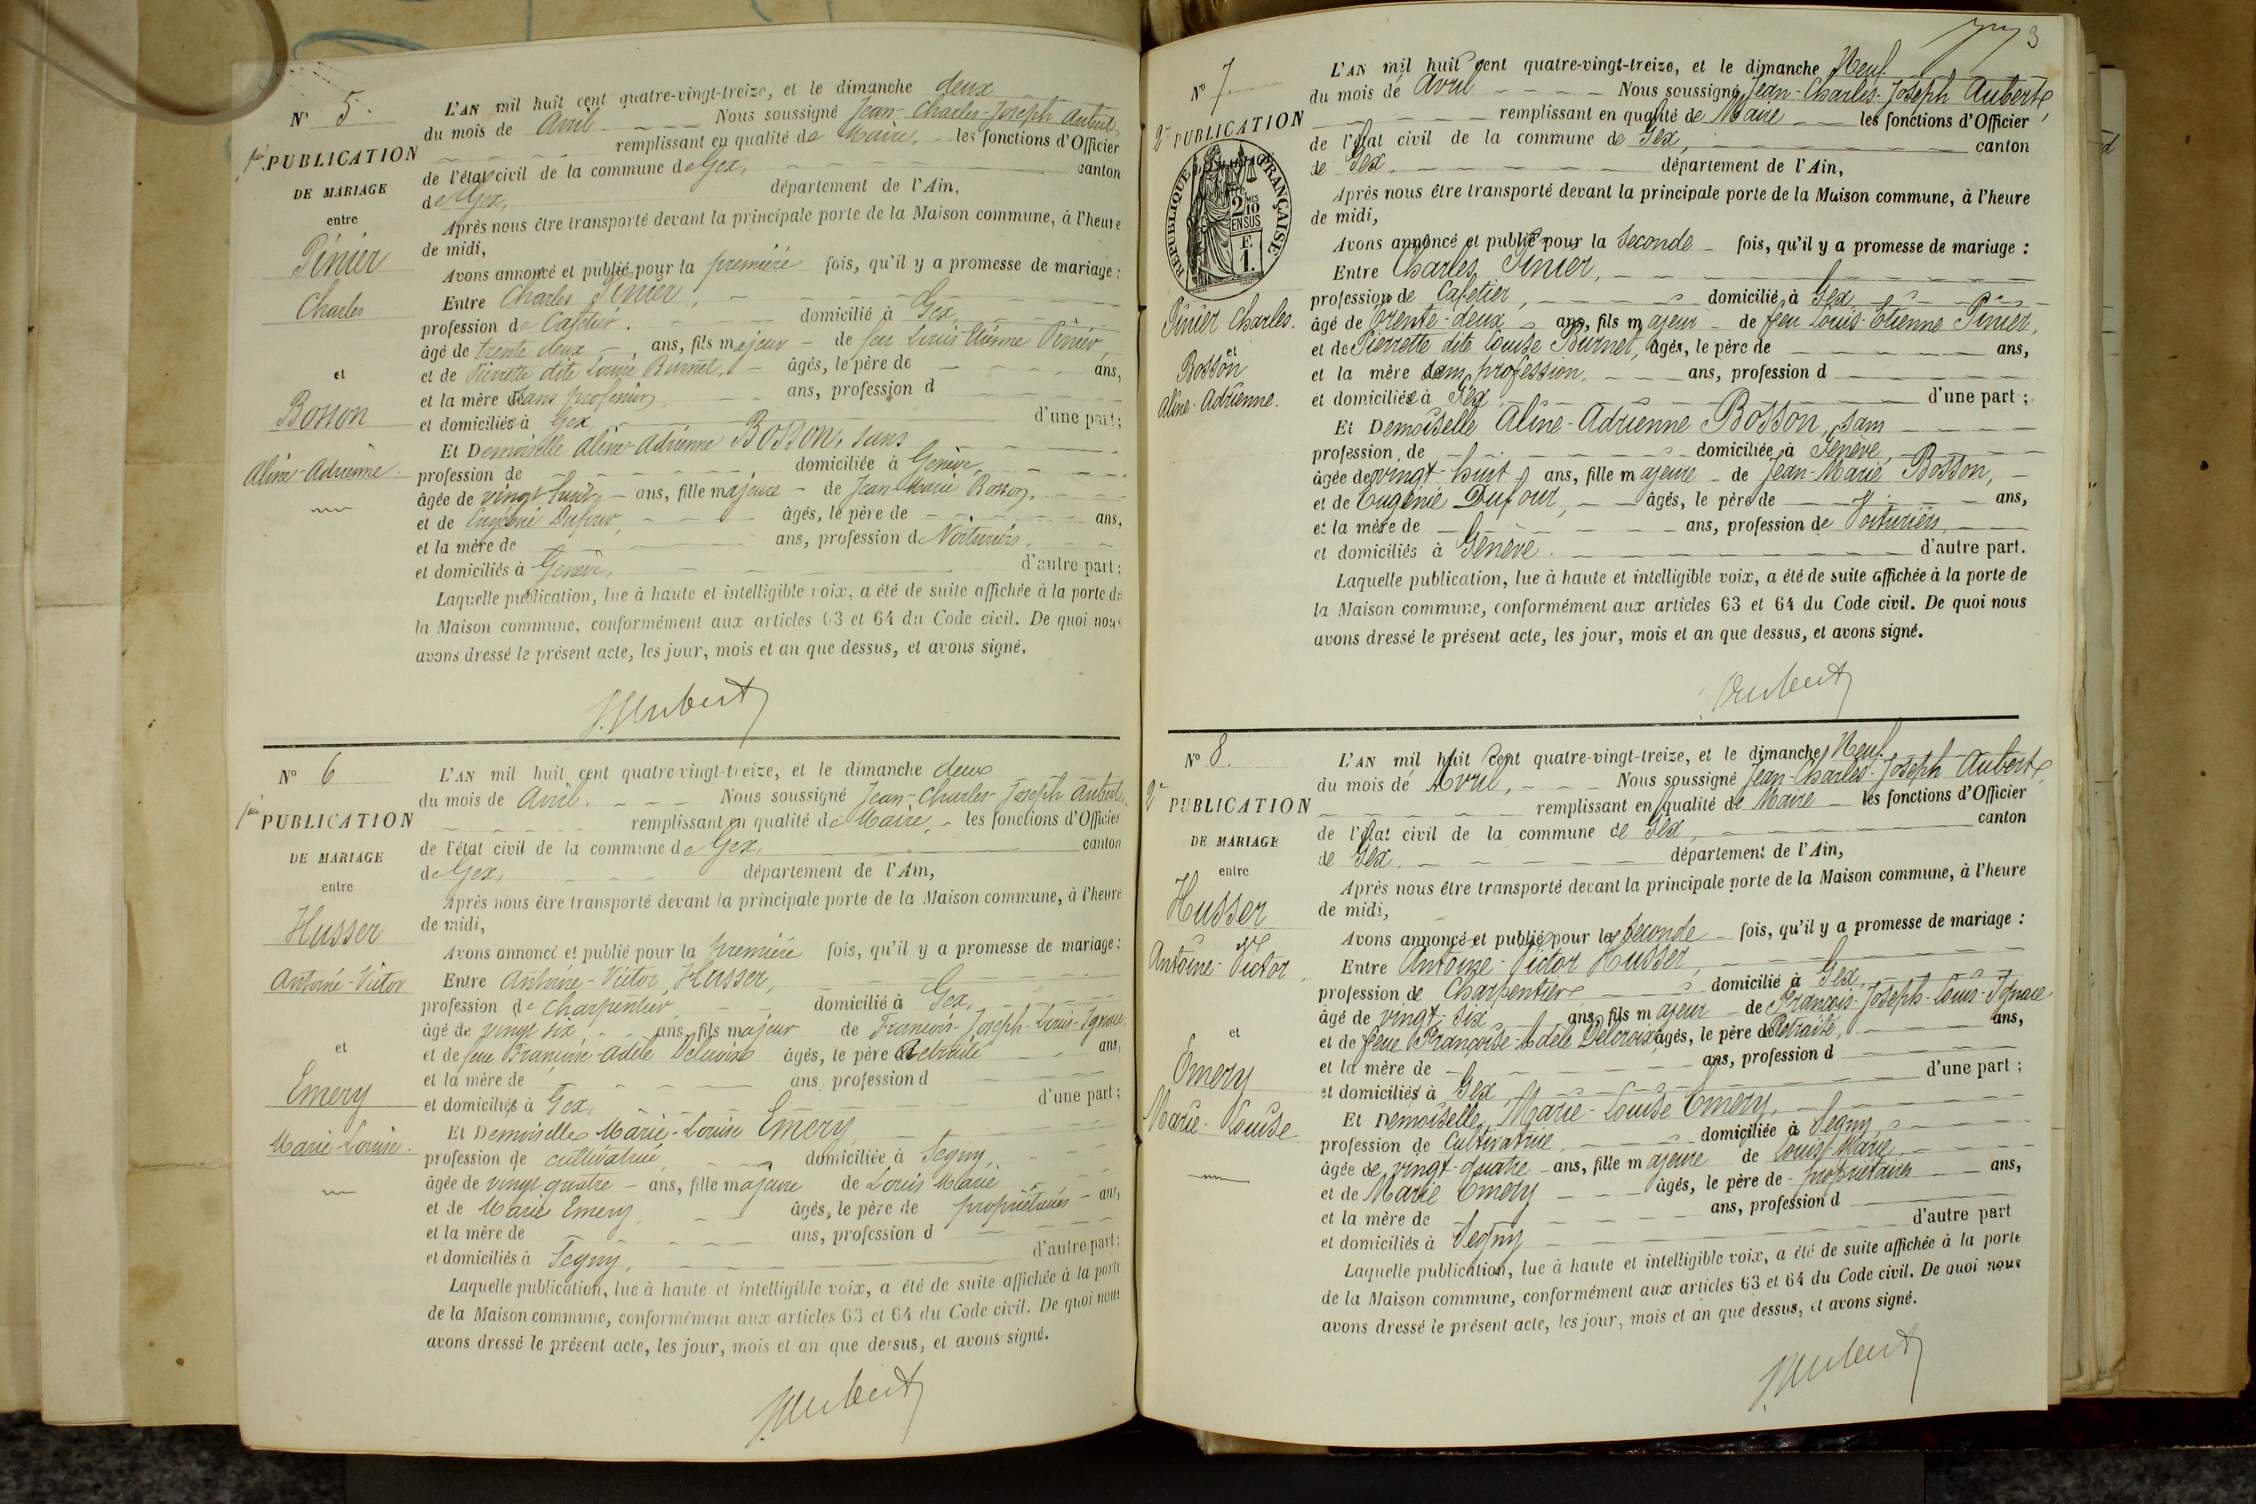 N° 5.
1ère PUBLICATION
DE MARIAGE
entre
Pinier
Charles
et
Bosson
Aline-Adrienne
L'AN mil huit cent quatre-vingt-treize, et le dimanche deux
du mois de Avril Nous soussigné Jean-Charles-Joseph Aubert,
remplissant en qualité de Maire, les fonctions d'Officier
de l'état civil de la commune de Gex, canton
de Gex, département de l'Ain,
Après nous être transporté devant la principale porte de la Maison commune, à l'heure
de midi,
Avons annoncé et publié pour la première fois, qu'il y a promesse de mariage :
Entre Charles Pinier,
profession de Cafetier. domicilié à Gex
âgé de trente deux ans, fils majeur de feu Louis Etienne Pinier,
et de Pierrette dite Louise Burnet, âgés, le père de ans,
et la mère sans profession ans, profession d
et domiciliés à Gex d'une part;
Et Demoiselle Aline-Adrienne Bosson, sans
profession de domiciliée à Genève,
âgée de vingt huit ans, fille majeure de Jean-Marie Bosson,
et de Eugénie Dufour, âgés, le père de ans,
et la mère de ans, profession de Voituriers.
et domiciliés à Genève, d'autre part;
Laquelle publication, lue à haute et intelligible voix, a été de suite affichée à la porte de
la Maison commune, conformément aux articles 63 et 64 du Code civil. De quoi nous
avons dressé le présent acte, les jour, mois et an que dessus, et avons signé.
J. Aubert
N° 6
1ère PUBLICATION
DE MARIAGE
entre
Husser
Antoine-Victor
et
Emery
Marie-Louise.
L'AN mil huit cent quatre-vingt-treize, et le dimanche deux
du mois de Avril. Nous soussigné Jean-Charles-Joseph Aubert,
remplissant en qualité de Maire, les fonctions d'Officier
de l'état civil de la commune de Gex, canton
de Gex, département de l'Ain,
Après nous être transporté devant la principale porte de la Maison commune, à l'heure
de midi,
Avons annoncé et publié pour la première fois, qu'il y a promesse de mariage :
Entre Antoine-Victor Husser,
profession de charpentier, domicilié à Gex,
âgé de vingt six ans, fils majeur de François-Joseph-Louis-Ignace
et de feue Françoise-Adèle Delcroix âgés, le père Retraité ans,
et la mère de ans, profession d
et domiciliés à Gex. d'une part;
Et Demoiselle Marie-Louise Emery
profession de cultivatrice, domiciliée à Segny,
âgée de vingt quatre ans, fille majeure de Louis Marie
et de Marie Emery âgés, le père de propriétaires ans,
et la mère de ans, profession d
et domiciliés à Segny, d'autre part;
Laquelle publication, lue à haute et intelligible voix, a été de suite affichée à la porte
de la Maison commune, conformément aux articles 63 et 64 du Code civil. De quoi nous
avons dressé le présent acte, les jour, mois et an que dessus, et avons signé.
J. Aubert
3
N° 7.
2e PUBLICATION
DE MARIAGE
RÉPUBLIQUE FRANÇAISE
2/10 EN SUS
F.
1.
Pinier Charles.
et
Bosson
Aline-Adrienne.
L'AN mil huit cent quatre-vingt-treize, et le dimanche Neuf
du mois de Avril Nous soussigné Jean-Charles-Joseph Aubert,
remplissant en qualité de Maire les fonctions d'Officier
de l'état civil de la commune de Gex, canton
de Gex. département de l'Ain,
Après nous être transporté devant la principale porte de la Maison commune, à l'heure
de midi,
Avons annoncé et publié pour la seconde fois, qu'il y a promesse de mariage :
Entre Charles Pinier,
profession de Cafetier, domicilié à Gex
âgé de trente-deux ans, fils majeur de feu Louis-Etienne Pinier,
et de Pierrette dite Louise Burnet, âgés, le père de ans,
et la mère sans profession. ans, profession d
et domiciliés à Gex d'une part;
Et Demoiselle Aline-Adrienne Bosson, sans
profession de domiciliée à Genève,
âgée de vingt-huit ans, fille majeure de Jean-Marie Bosson,
et de Eugénie Dufour, âgés, le père de ans,
et la mère de ans, profession de Voituriers,
et domiciliés à Genève. d'autre part.
Laquelle publication, lue à haute et intelligible voix, a été de suite affichée à la porte de
la Maison commune, conformément aux articles 63 et 64 du Code civil. De quoi nous
avons dressé le présent acte, les jour, mois et an que dessus, et avons signé.
J. Aubert
N° 8.
2e PUBLICATION
DE MARIAGE
entre
Husser
Antoine-Victor
et
Emery
Marie-Louise
L'AN mil huit cent quatre-vingt-treize, et le dimanche Neuf
du mois de Avril, Nous soussigné Jean-Charles-Joseph Aubert,
remplissant en qualité de Maire les fonctions d'Officier
de l'état civil de la commune de Gex, canton
de Gex. département de l'Ain,
Après nous être transporté devant la principale porte de la Maison commune, à l'heure
de midi,
Avons annoncé et publié pour la seconde fois, qu'il y a promesse de mariage :
Entre Antoine-Victor Husser,
profession de Charpentier domicilié à Gex,
âgé de vingt-six ans, fils majeur de François-Joseph-Louis-Ignace
et de feue Françoise-Adèle Delcroix âgés, le père de Retraité, ans,
et la mère de ans, profession d
et domiciliés à Gex d'une part;
Et Demoiselle Marie-Louise Emery,
profession de Cultivatrice domiciliée à Segny,
âgée de vingt-quatre ans, fille majeure de Louis Marie
et de Marie Emery âgés, le père de propriétaires ans,
et la mère de ans, profession d
et domiciliés à Segny d'autre part
Laquelle publication, lue à haute et intelligible voix, a été de suite affichée à la porte
de la Maison commune, conformément aux articles 63 et 64 du Code civil. De quoi nous
avons dressé le présent acte, les jour, mois et an que dessus, et avons signé.
J. Aubert